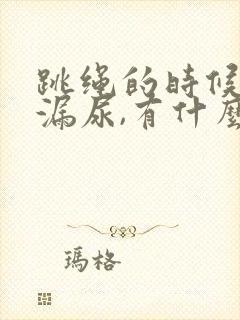 跳绳的時候
漏尿,有什麼
瑪格